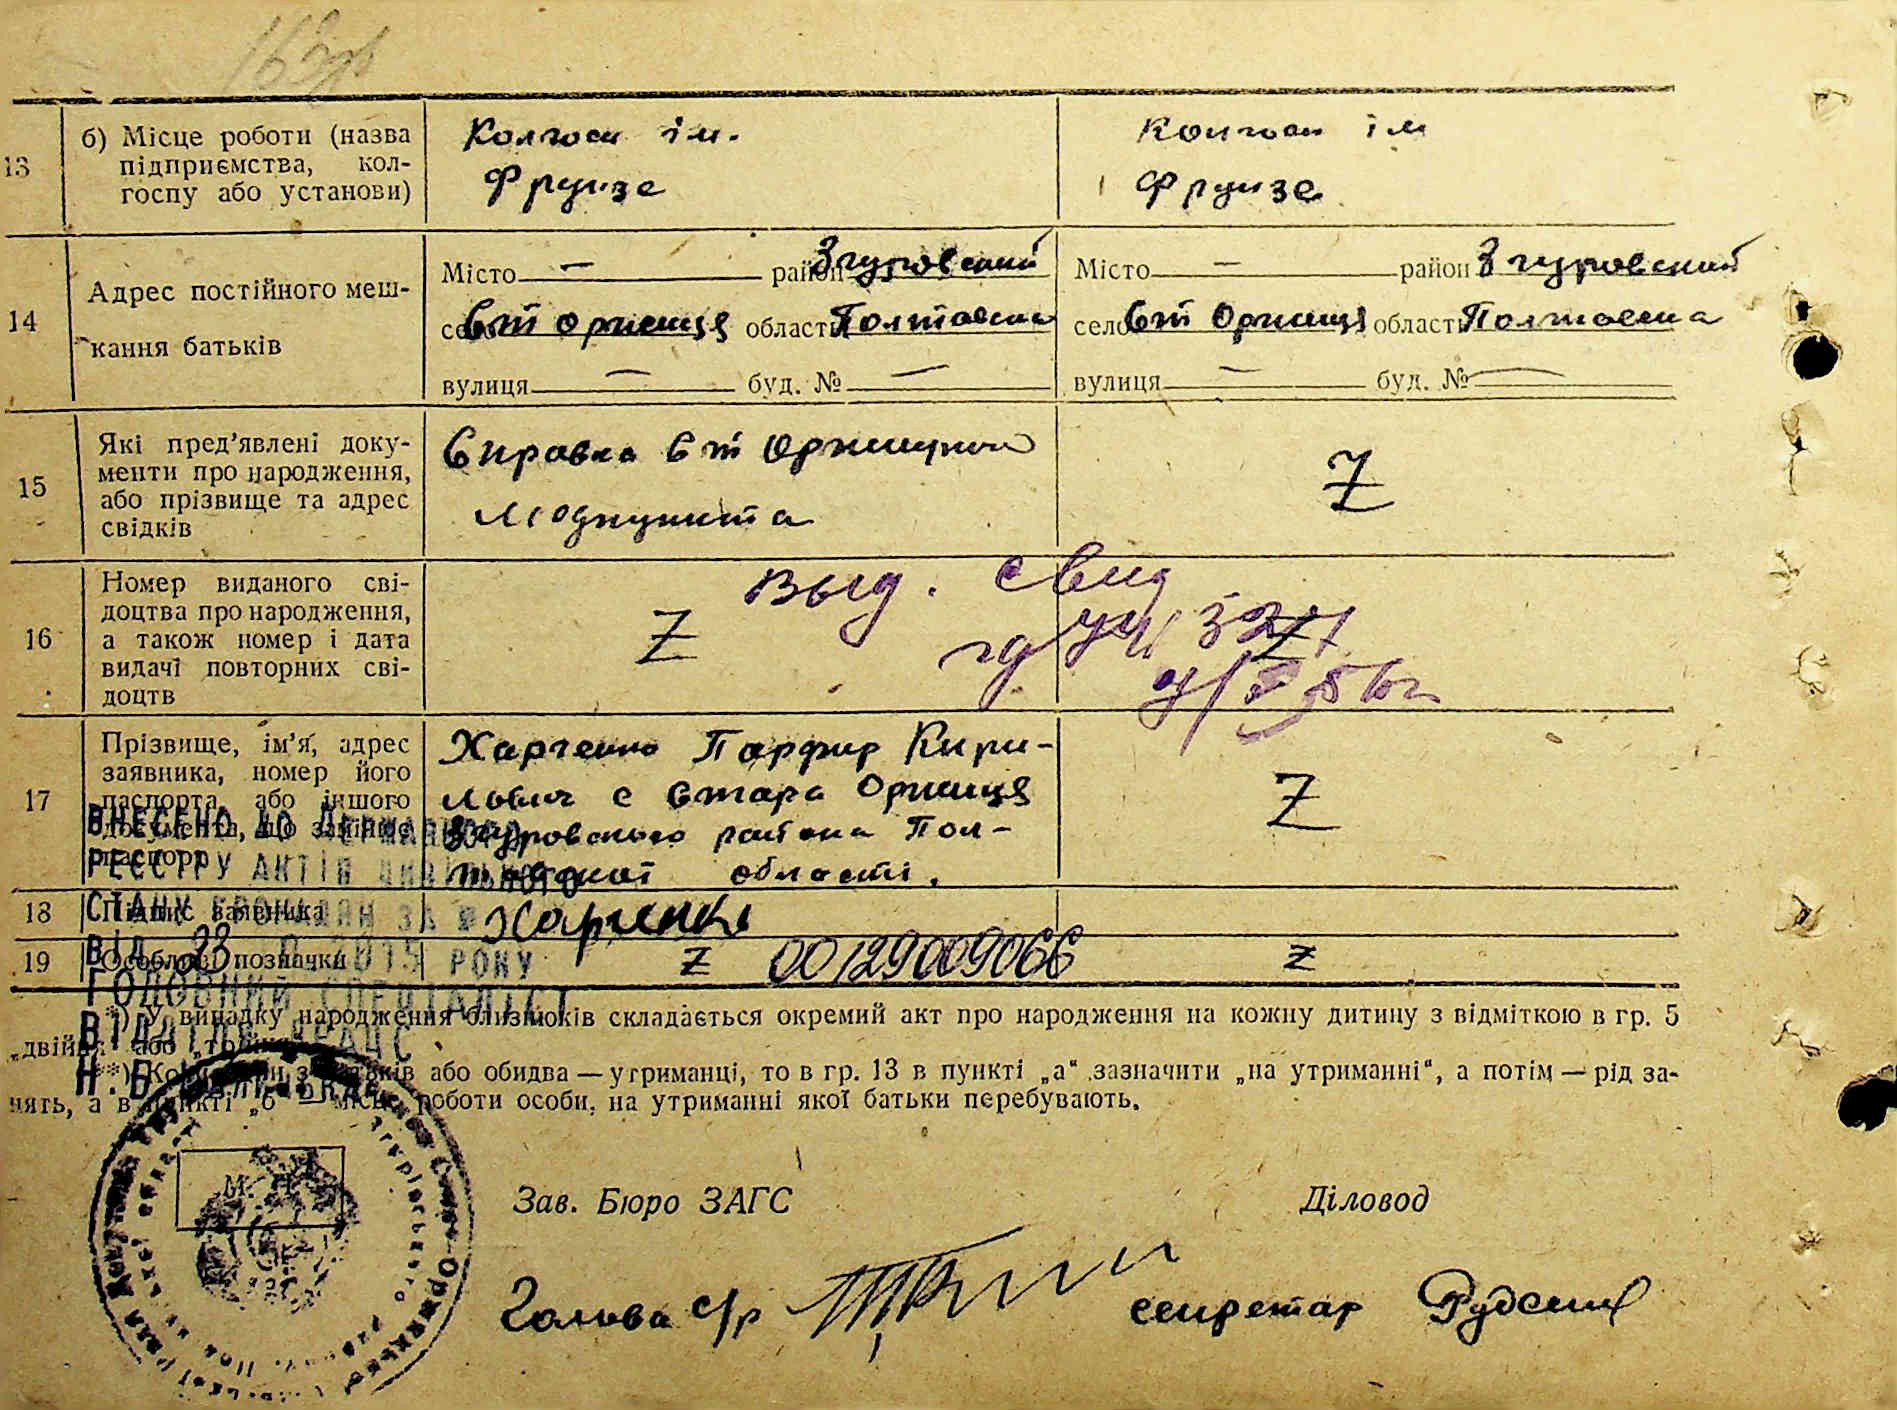 13
б) Місце роботи (назва
підприємства, кол-
госпу або установи)
Колгосп ім.
Фрунзе
Колгосп ім
Фрунзе
14
Адрес постійного меш-
кання батьків
Місто — район Згуровский
село Ст Оржиця області Полтавска
вулиця — буд. № —
Місто — район Згуровский
село Ст Оржиця області Полтавска
вулиця — буд. № —
15
Які пред'явлені доку-
менти про народження,
або прізвище та адрес
свідків
Справка Ст Оржицкого
медпункта
Z
16
Номер виданого сві-
доцтва про народження,
а також номер і дата
видачі повторних сві-
доцтв
Z
Выд. свид
Z
17
Прізвище, ім'я, адрес
заявника, номер його
паспорта, або іншого
документа, що замінює
паспорт
Харченко Парфир Кири-
лович с Стара Оржиця
Згуровського района Пол-
тавської області.
Z
18
Підпис заявника
Харченко
19
Особливі позначки
Z 00129009066
Z
ВНЕСЕНО ДО ДЕРЖАВНОГО
РЕЄСТРУ АКТІВ ЦИВІЛЬНОГО
СТАНУ ГРОМАДЯН ЗА №
ВІД 23 2015 РОКУ
ГОЛОВНИЙ СПЕЦІАЛІСТ
ВІДДІЛУ ДРАЦС
*) У випадку народження близнюків складається окремий акт про народження на кожну дитину з відміткою в гр. 5
„двійня" або „трійня".
**) Коли один з батьків або обидва — утриманці, то в гр. 13 в пункті „а" зазначити „на утриманні", а потім — рід за-
нять, а в пункті „б" — місце роботи особи, на утриманні якої батьки перебувають.
М. П.
Зав. Бюро ЗАГС
Діловод
Голова с/р
секретар Рудский